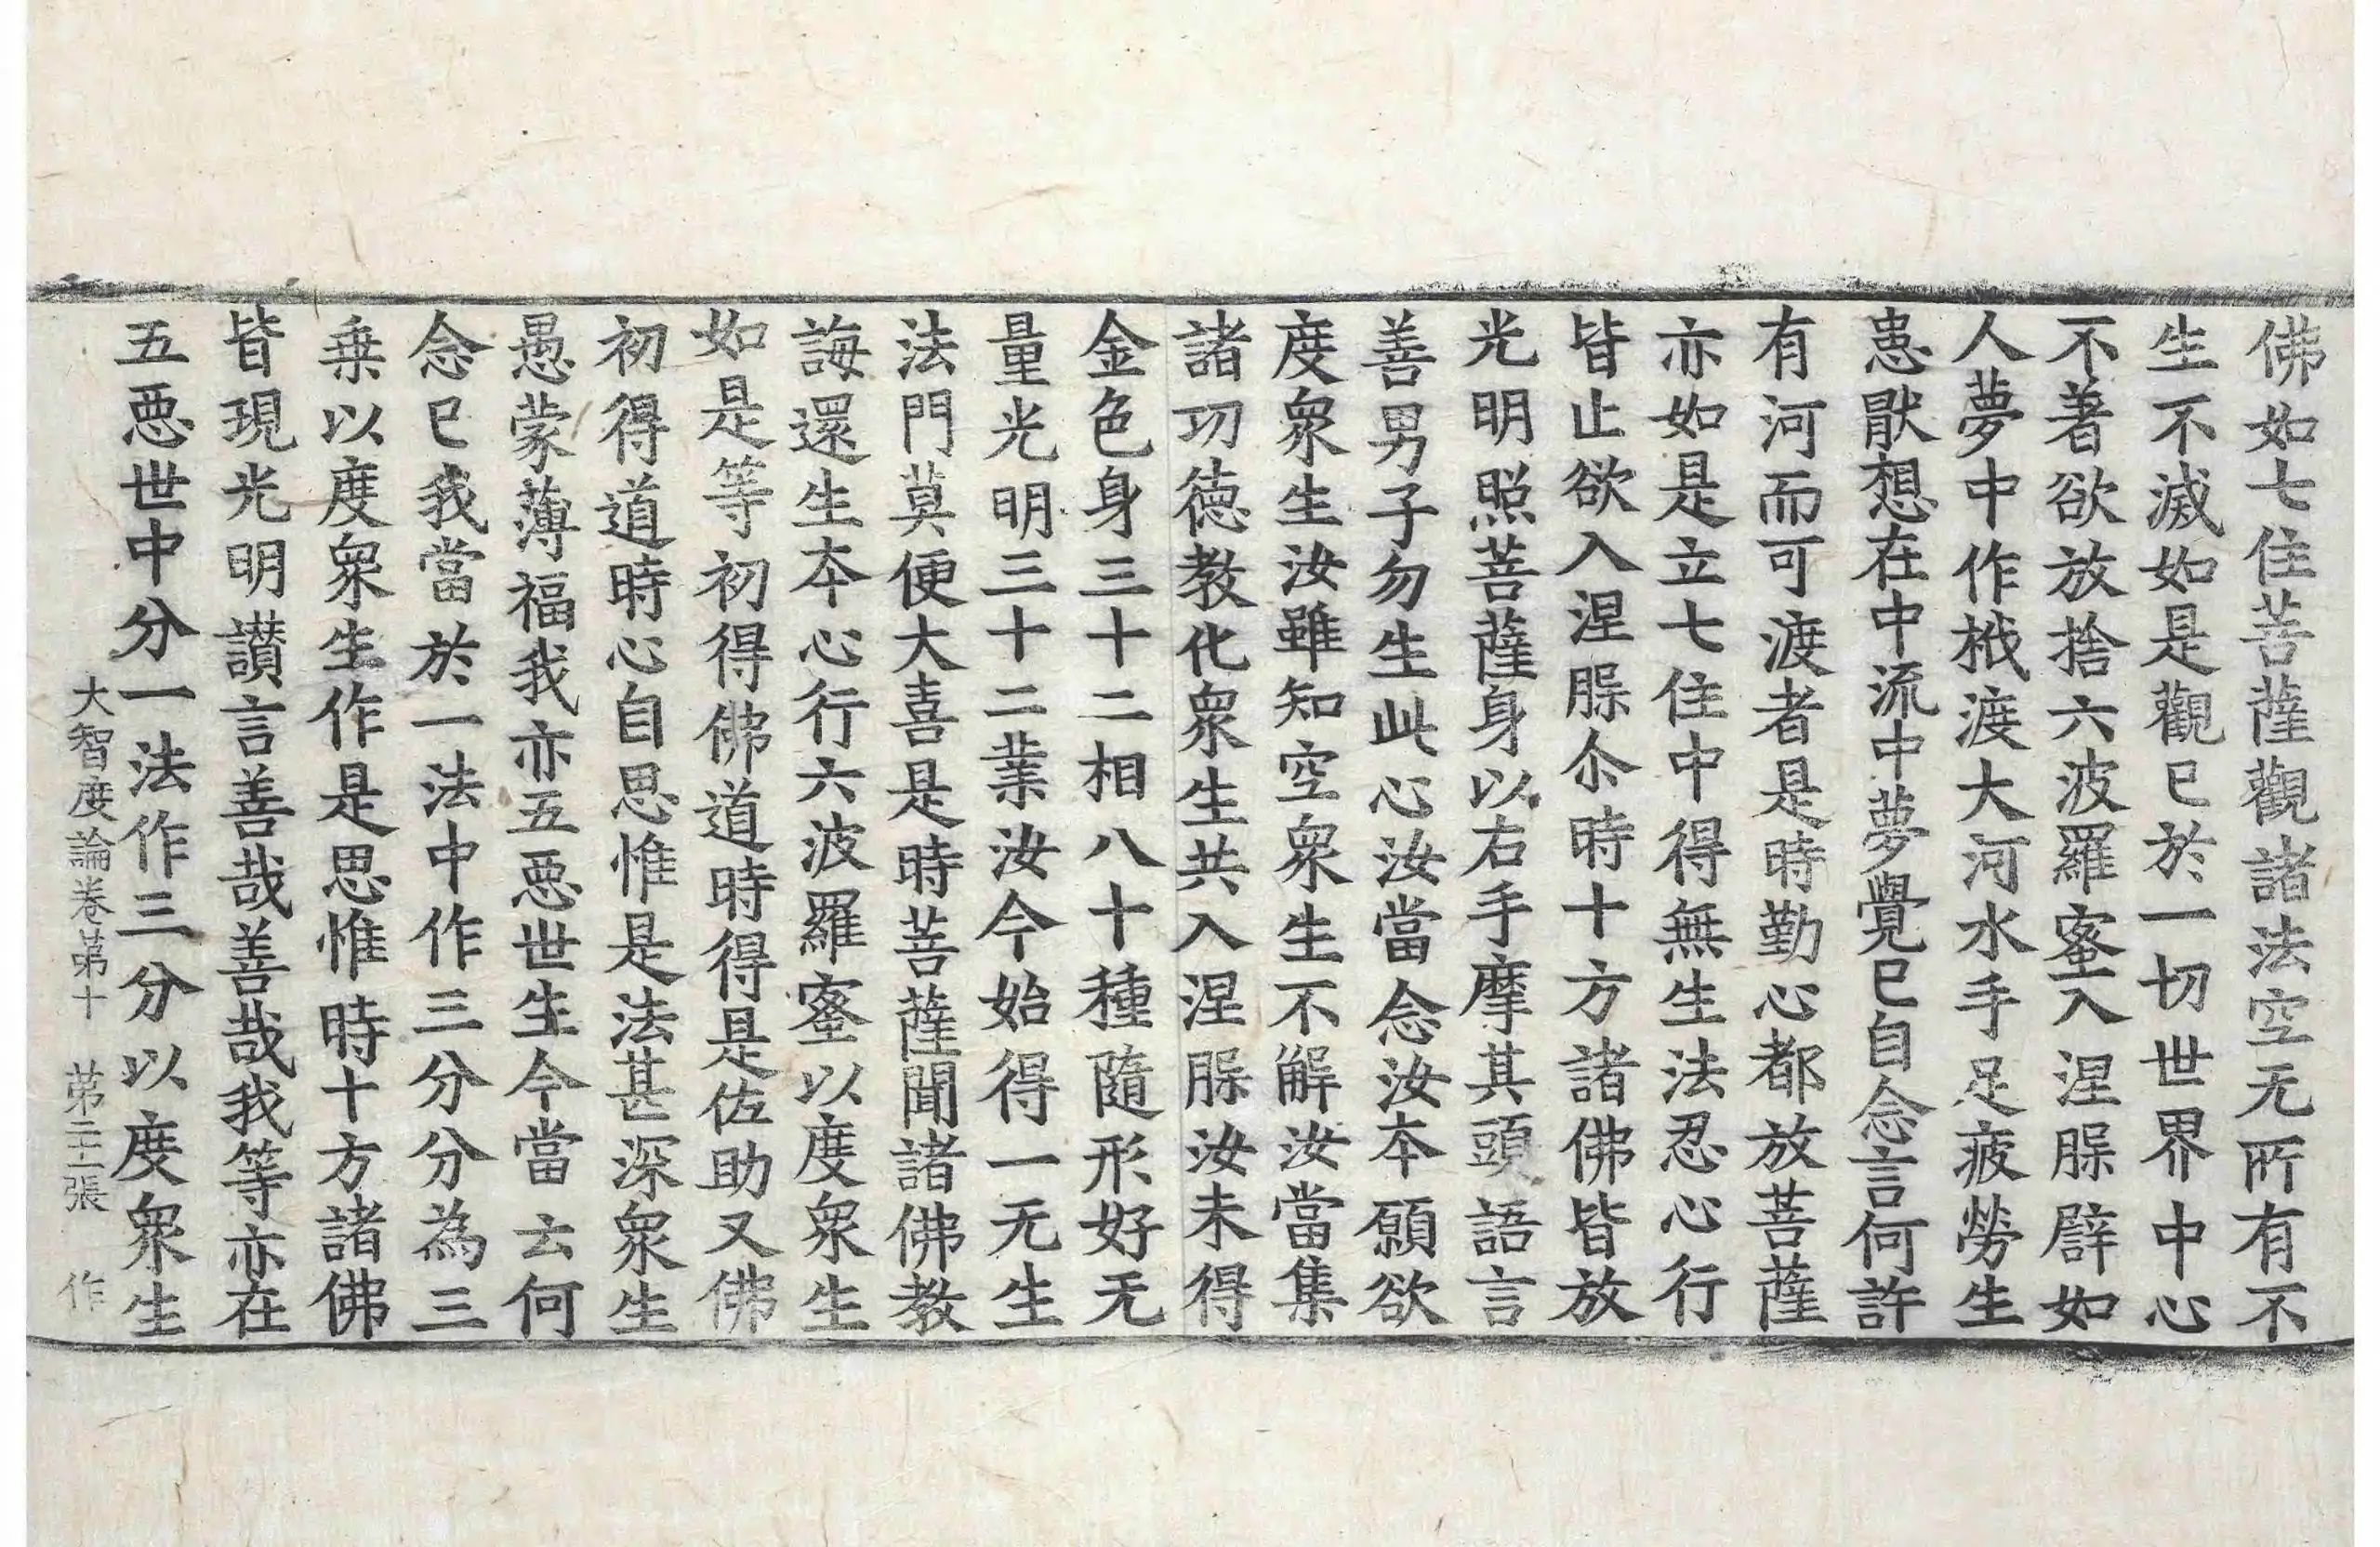 佛如七住菩薩觀諸法空无所有不
生不滅如是觀已於一切世界中心
不著欲放捨六波羅蜜入涅脲譬如
人夢中作栰渡大河水手足疲勞生
患猒想在中流中夢覺已自念言何許
有河而可渡者是時勤心都放菩薩
亦如是立七住中得無生法忍心行
皆止欲入涅脲尒時十方諸佛皆放
光明照菩薩身以右手摩其頭語言
善男子勿生此心汝當念汝本願欲
度衆生汝雖知空衆生不解汝當集
諸功德教化衆生共入涅脲汝未得
金色身三十二相八十種隨形好无
量光明三十二業汝今始得一无生
法門莫便大喜是時菩薩聞諸佛教
誨還生本心行六波羅蜜以度衆生
如是等初得佛道時得是佐助又佛
初得道時心自思惟是法甚深衆生
愚蒙薄福我亦五惡世生今當云何
念已我當於一法中作三分分為三
乗以度衆生作是思惟時十方諸佛
皆現光明讃言善哉善哉我等亦在
五惡世中分一法作三分以度衆生
大智度論卷第十 第二十二張 作